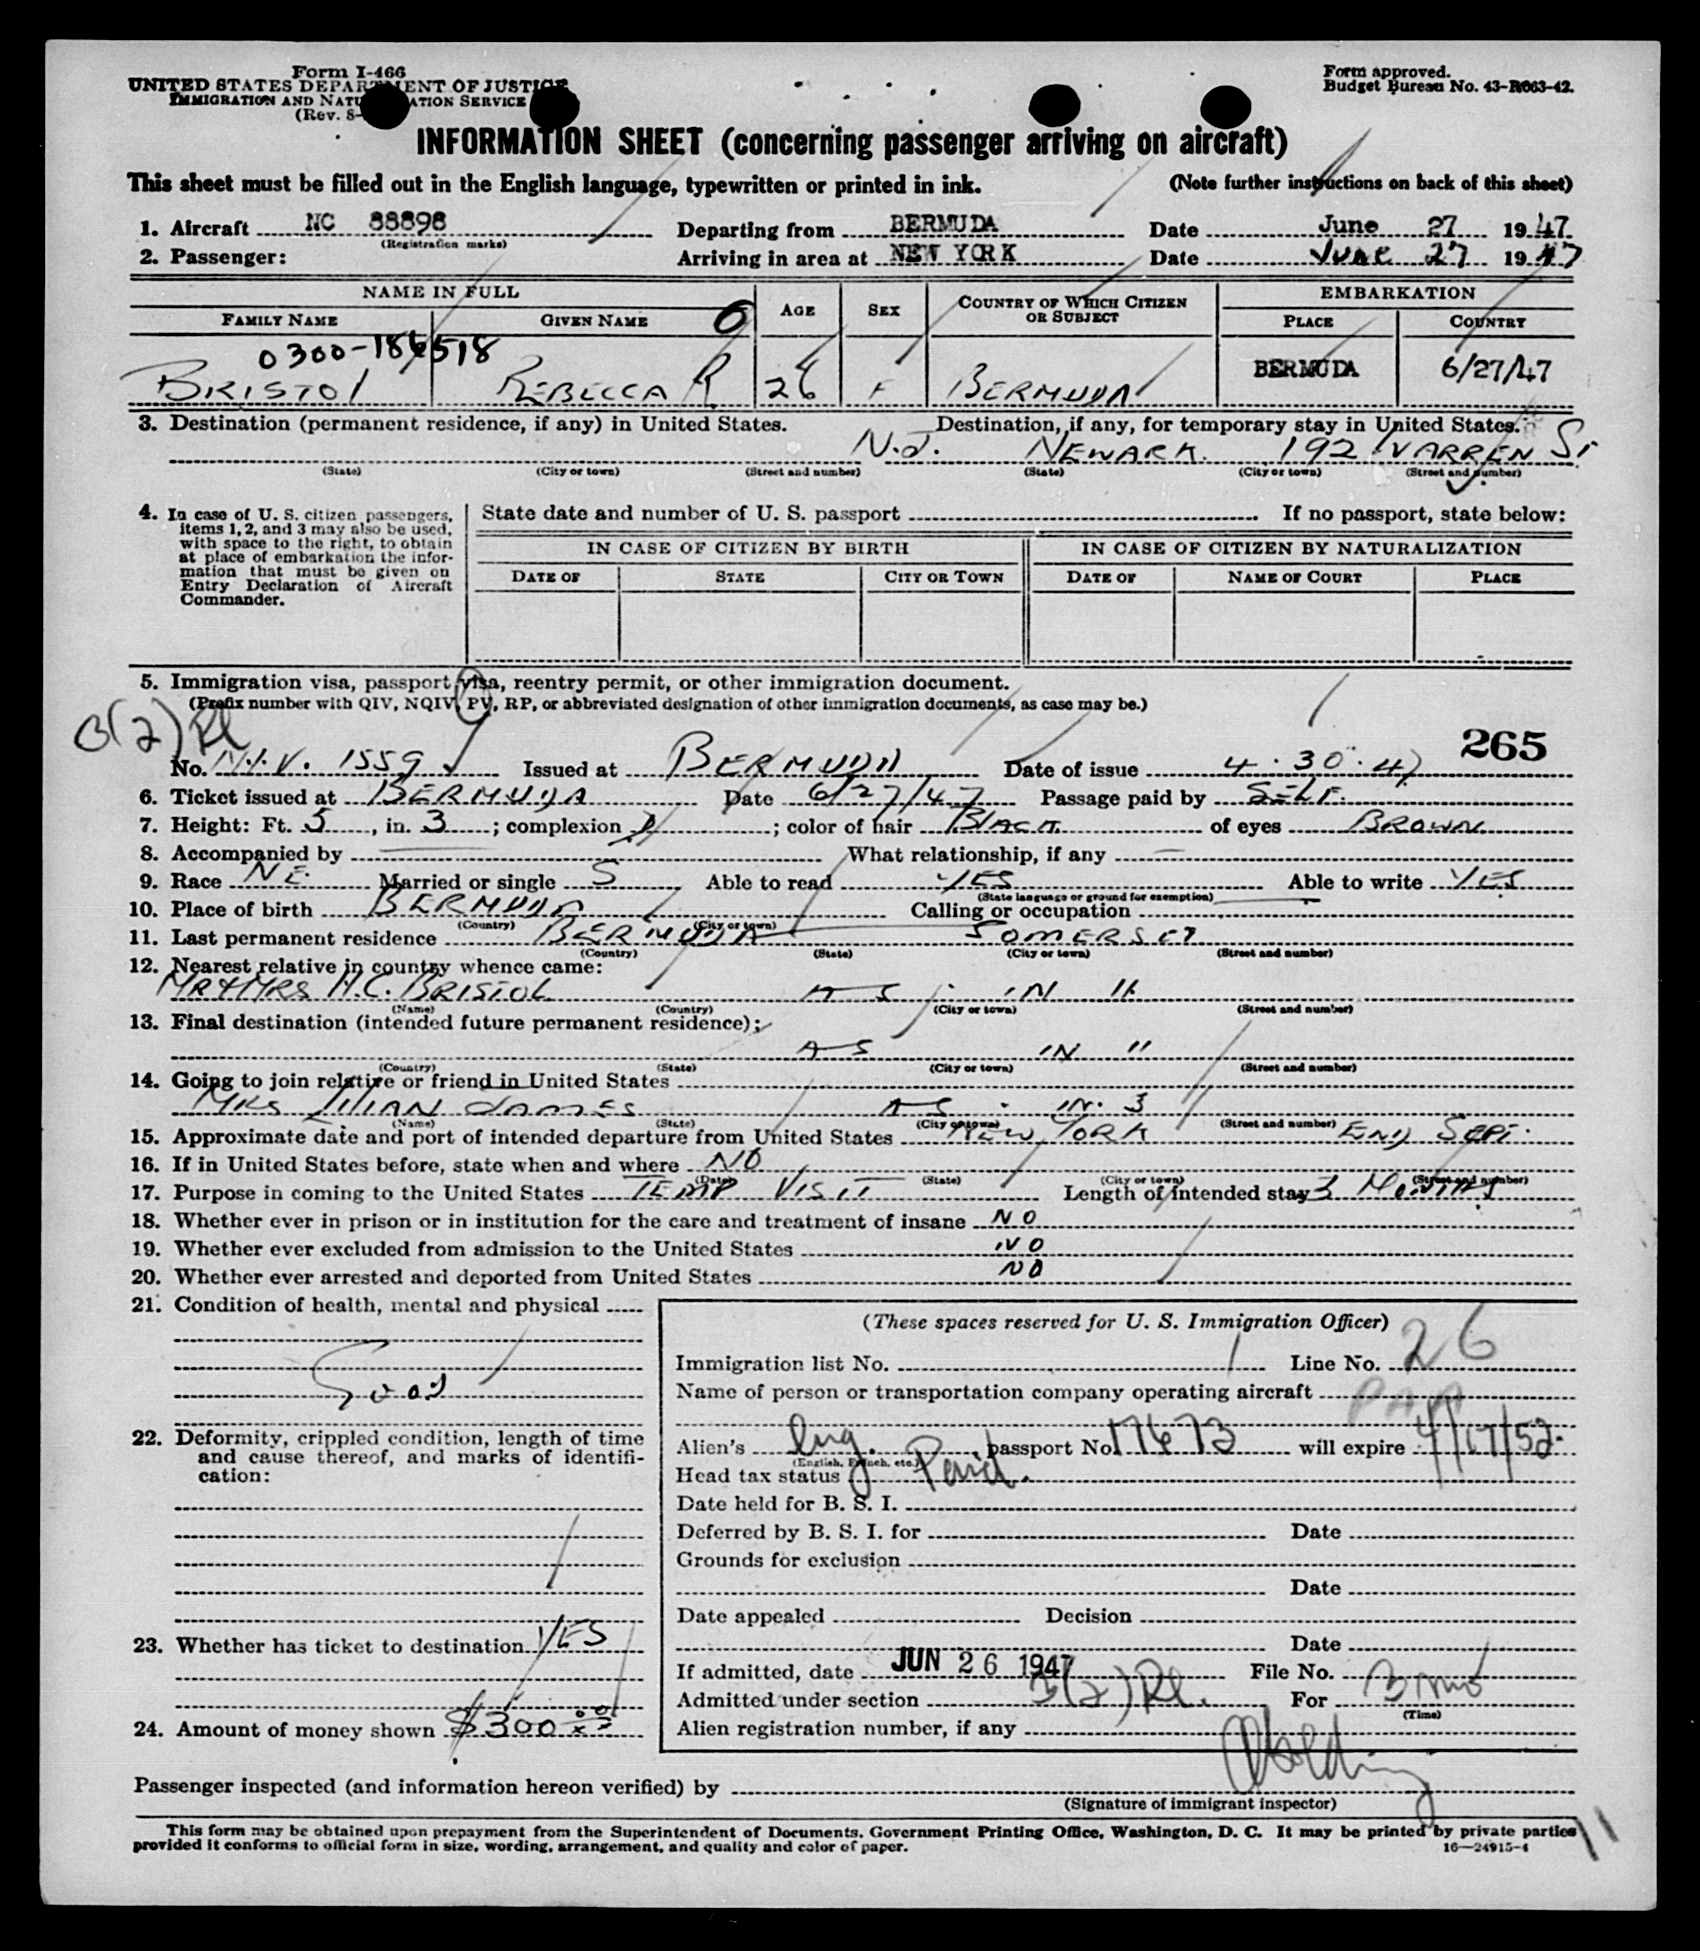 Form I-466
UNITED STATES DEPARTMENT OF JUSTICE
IMMIGRATION AND NATURALIZATION SERVICE
(Rev. 8-
Form approved.
Budget Bureau No. 43-R063-42.
INFORMATION SHEET (concerning passenger arriving on aircraft)
This sheet must be filled out in the English language, typewritten or printed in ink. (Note further instructions on back of this sheet)
1. Aircraft NC 88898 Departing from BERMUDA Date June 27 1947
(Registration marks)
2. Passenger: Arriving in area at NEW YORK Date June 27 1947
NAME IN FULL AGE SEX COUNTRY OF WHICH CITIZEN OR SUBJECT EMBARKATION
FAMILY NAME GIVEN NAME O PLACE COUNTRY
0300-186518
BRISTOL REBECCA R 26 F BERMUDA BERMUDA 6/27/47
3. Destination (permanent residence, if any) in United States. Destination, if any, for temporary stay in United States.
N.J. NEWARK. 192 WARREN ST
(State) (City or town) (Street and number) (State) (City or town) (Street and number)
4. In case of U. S. citizen passengers, items 1, 2, and 3 may also be used, with space to the right, to obtain at place of embarkation the information that must be given on Entry Declaration of Aircraft Commander.
State date and number of U. S. passport If no passport, state below:
IN CASE OF CITIZEN BY BIRTH IN CASE OF CITIZEN BY NATURALIZATION
DATE OF STATE CITY OR TOWN DATE OF NAME OF COURT PLACE
5. Immigration visa, passport visa, reentry permit, or other immigration document.
(Prefix number with QIV, NQIV, PV, RP, or abbreviated designation of other immigration documents, as case may be.)
3(2) Rl
265
No. N.I.V. 1559 Issued at BERMUDA Date of issue 4.30.47
6. Ticket issued at BERMUDA Date 6/27/47 Passage paid by SELF.
7. Height: Ft. 5, in. 3; complexion D; color of hair BLACK of eyes BROWN
8. Accompanied by — What relationship, if any —
9. Race NE. Married or single S Able to read YES Able to write YES
(State language or ground for exemption)
10. Place of birth BERMUDA Calling or occupation
(Country) (City or town)
11. Last permanent residence BERMUDA SOMERSET
(Country) (State) (City or town) (Street and number)
12. Nearest relative in country whence came:
MR & MRS H.C. BRISTOL AS IN 11
(Name) (Country) (City or town) (Street and number)
13. Final destination (intended future permanent residence);
AS IN "
(Country) (State) (City or town) (Street and number)
14. Going to join relative or friend in United States
MRS LILIAN JAMES AS . IN. 3
(Name) (State) (City or town) (Street and number)
15. Approximate date and port of intended departure from United States NEW YORK END SEPT.
16. If in United States before, state when and where NO
(Date) (State) (City or town) (Street and number)
17. Purpose in coming to the United States TEMP VISIT Length of intended stay 3 MONTHS
18. Whether ever in prison or in institution for the care and treatment of insane NO
19. Whether ever excluded from admission to the United States NO
20. Whether ever arrested and deported from United States NO
21. Condition of health, mental and physical
Good
22. Deformity, crippled condition, length of time and cause thereof, and marks of identification:
23. Whether has ticket to destination YES
24. Amount of money shown $300 00/xx
(These spaces reserved for U. S. Immigration Officer)
Immigration list No. Line No. 26
Name of person or transportation company operating aircraft PAA
Alien's Eng. passport No. 17673 will expire 4/17/52.
(English, French, etc.)
Head tax status Paid.
Date held for B. S. I.
Deferred by B. S. I. for Date
Grounds for exclusion
Date
Date appealed Decision
Date
If admitted, date JUN 26 1947 File No.
Admitted under section 3(2) Rl. For 3 mos
(Time)
Alien registration number, if any
Passenger inspected (and information hereon verified) by
(Signature of immigrant inspector)
This form may be obtained upon prepayment from the Superintendent of Documents, Government Printing Office, Washington, D. C. It may be printed by private parties
provided it conforms to official form in size, wording, arrangement, and quality and color of paper. 16—24915-4